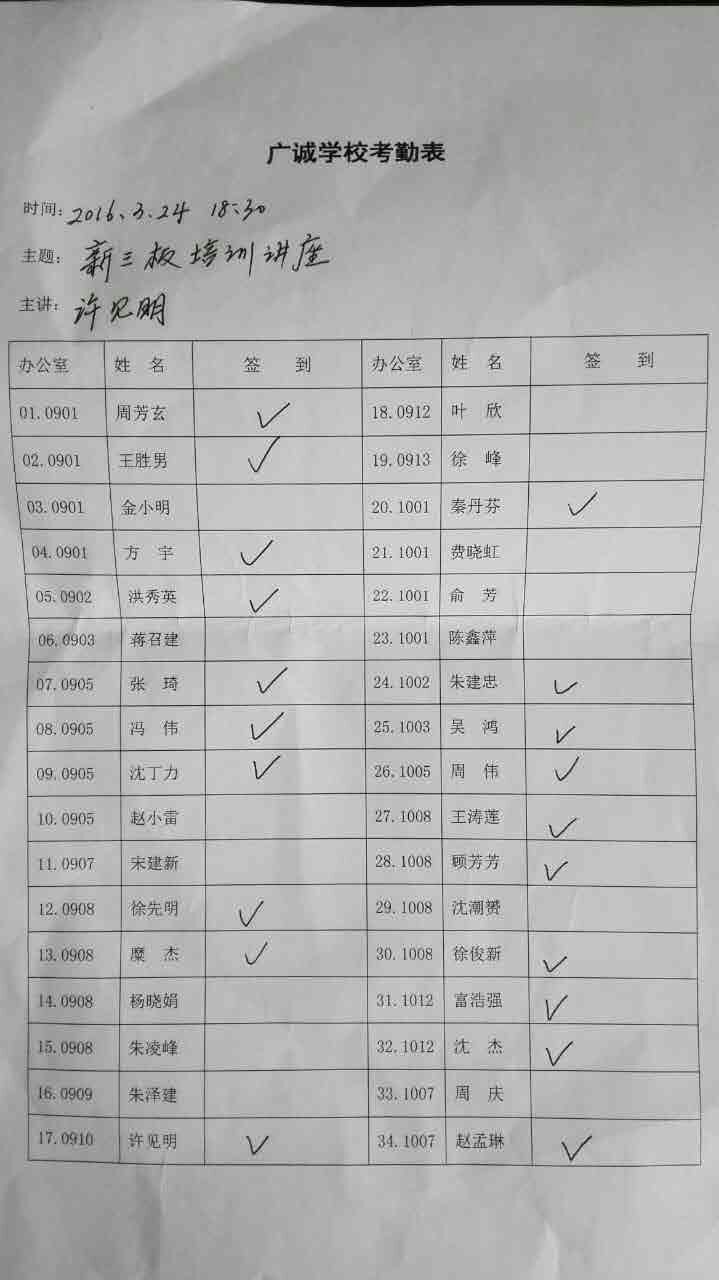 广诚学校考勤表
时间: 2016.3.24 18:30
主题: 新三板培训讲座
主讲: 许见明
办公室 姓 名 签 到 办公室 姓 名 签 到
01.0901 周芳玄 ✓ 18.0912 叶 欣
02.0901 王胜男 ✓ 19.0913 徐 峰
03.0901 金小明 20.1001 秦丹芬 ✓
04.0901 方 宇 ✓ 21.1001 费晓虹
05.0902 洪秀英 ✓ 22.1001 俞 芳
06.0903 蒋召建 23.1001 陈鑫萍
07.0905 张 琦 ✓ 24.1002 朱建忠 ✓
08.0905 冯 伟 ✓ 25.1003 吴 鸿 ✓
09.0905 沈丁力 ✓ 26.1005 周 伟 ✓
10.0905 赵小雷 27.1008 王涛莲 ✓
11.0907 宋建新 28.1008 顾芳芳 ✓
12.0908 徐先明 ✓ 29.1008 沈潮赟
13.0908 糜 杰 ✓ 30.1008 徐俊新 ✓
14.0908 杨晓娟 31.1012 富浩强 ✓
15.0908 朱凌峰 32.1012 沈 杰 ✓
16.0909 朱泽建 33.1007 周 庆
17.0910 许见明 ✓ 34.1007 赵孟琳 ✓